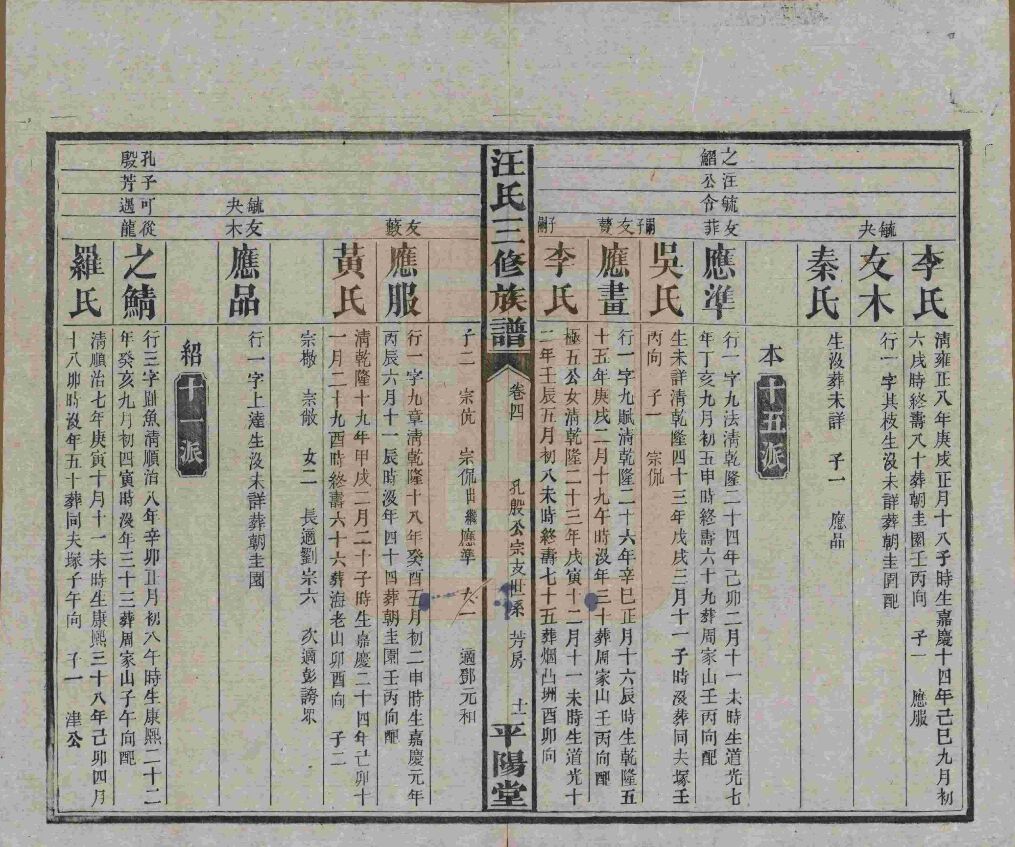 李氏
清雍正八年庚戌正月十八子時生嘉慶十四年己巳九月初
六戌時終壽八十葬朝圭園壬丙向 子一 應服
毓夬
友木
行一字其枝生沒未詳葬朝圭園配
秦氏
生沒葬未詳 子一 應品
本十五派
之䲙
汪公
毓令
友菲
應準
行一字九法清乾隆二十四年己卯二月十一未時生道光七
年丁亥九月初五申時終壽六十九葬周家山壬丙向配
吳氏
生未詳清乾隆四十三年戊戌三月十一子時沒葬同夫塚壬
丙向 子一 宗侃
嗣子
友
應畫
行一字九賦清乾隆二十六年辛巳正月十六辰時生乾隆五
十五年庚戌二月十九午時沒年三十葬周家山壬丙向配
子嗣
李氏
極五公女清乾隆二十三年戊寅十二月十一未時生道光十
二年壬辰五月初八未時終壽七十五葬烟凸塀酉卯向
汪氏三修族譜
卷四
孔殷公宗支世系 芳房
十一
平陽堂
子二 宗伉 宗侃出繼應準 女一 適鄧元和
友藙
應服
行一字九章清乾隆十八年癸酉五月初二申時生嘉慶元年
丙辰六月十一辰時沒年四十四葬朝圭園壬丙向配
黃氏
清乾隆十九年甲戌二月二十子時生嘉慶二十四年己卯十
一月二十九酉時終壽六十六葬海老山卯酉向 子二
宗檄 宗敵 女二 長適劉宗六 次適彭誇眾
毓夬
友木
應品
行一字上達生沒未詳葬朝圭園
紹十一派
孔殷
子芳
可遇
從龍
之鯖
行三字劃魚清順治八年辛卯正月初八午時生康熙二十二
年癸亥九月初四寅時沒年三十三葬周家山子午向配
羅氏
清順治七年庚寅十月十一未時生康熙三十八年己卯四月
十八卯時沒年五十葬同夫塚子午向 子一 津公